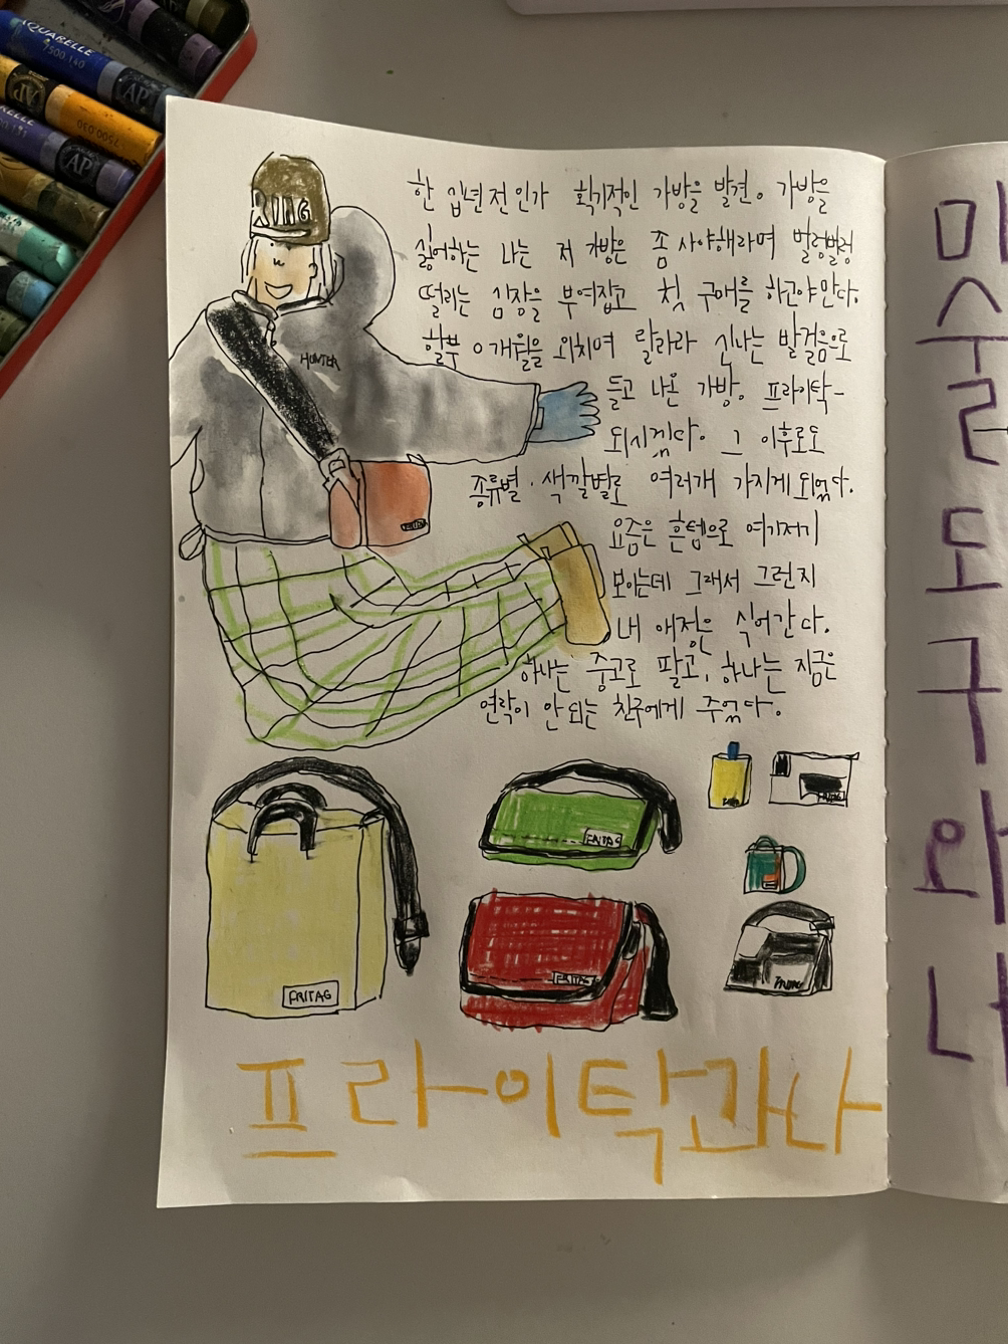 AQUARELLE
7500.140
7500.030
AP
한 십년전인가 획기적인 가방을 발견. 가방을
싫어하는 나는 저 가방은 좀 사야해라며 벌렁벌렁
떨리는 심장을 부여잡고 첫 구매를 하고야만다.
할부 0개월을 외치며 랄라라 신나는 발걸음으로
들고 나온 가방. 프라이탁-
되시겠다. 그 이후로도
종류별·색깔별로 여러개 가지게 되었다.
요즘은 흔템으로 여기저기
보이는데 그래서 그런지
내 애정은 식어간다.
하나는 중고로 팔고, 하나는 지금은
연락이 안되는 친구에게 주었다.
HUNTER
FRITAG
FRITAG
FRITAG
프라이탁과나
미술도구와나